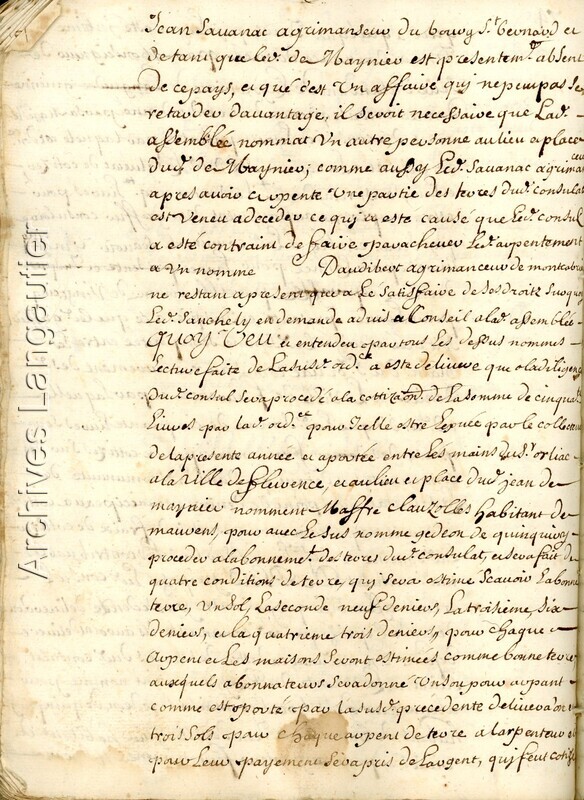 Jean Sauanac agrimanseur du bourg St bernard et
de tant que led. de Maynier est presentemt absent
de ce pays, et que c'est un affaire qui ne peut pas se
retarder dauantage, il seroit necessaire que lad.
assemblée nommat un autre personne au lieu et place
dud. de Maynier; comme aussy led. Sauanac agrima
apres auoir arpente une partie des terres dud. consulat
est veneu a deceder ce quy a esté causé que led. consul
a esté contraint de faire parachever led. arpentement
a un nommé Daudibert agrimanceur de
ne restant apresent que a le satisfaire de ses droitz
led. Sanchely en demande aduis et conseil a lad. assemblée
Quoy Veu et entendeu par tous les dessus nommes
lecture faite de la susd. ordce a este delivere que a la diligence
dud. consul sera procedé a la cottizaon de la somme de cinquante
livres par lad. ordce pour icelle estre leuée par le collecteur
de la presente année et aportée entre les mains du sr orliac
a la ville de fleurence, et au lieu et place dud. jean de
maynier nomment Maffre Clauzolles habitant de
mauvens, pour avec le sus nomme gedeon de
proceder a labonnemt des terres dud. consulat, et sera fait de
quatre conditions de terre, qui sera estimé scauoir la bonne
terre, un sol, la seconde neuf deniers, la troisieme, six
deniers, et la quatrieme trois deniers, pour chaque
arpent et les maisons seront estimées comme bonne terre
ausquels abonnateurs sera donné un sou pour arpant
comme est porté par la susd. precedente deliveraon et
trois sols pour chaque arpent de terre a larpenteur et
pour leur payement sera pris de largent, qui feut cotisé
Archives Langautier